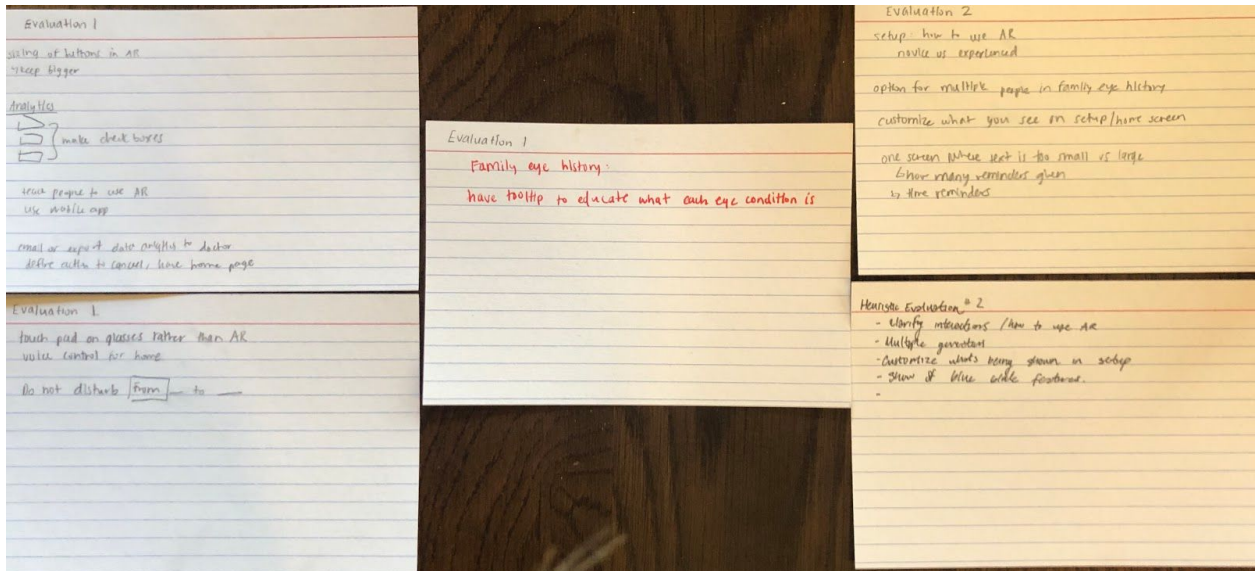 Evaluation 1
sizing of buttons in AR
keep bigger
Analytics
make check boxes
teach people to use AR
use mobile app
email or export data analytics to doctor
define action to cancel, have home page
Evaluation 1
touch pad on glasses rather than AR
voice control for home
Do not disturb From __ to __
Evaluation 1
Family eye history:
have tooltip to educate what each eye condition is
Evaluation 2
setup: how to use AR
novice vs experienced
option for multiple people in family eye history
customize what you see on setup/home screen
one screen where text is too small vs large
↳ how many reminders given
↳ time reminders
Heuristic Evaluation #2
- Clarify interactions / how to use AR
- Multiple
- Customize what's being shown in setup
- Show of blue features.
-